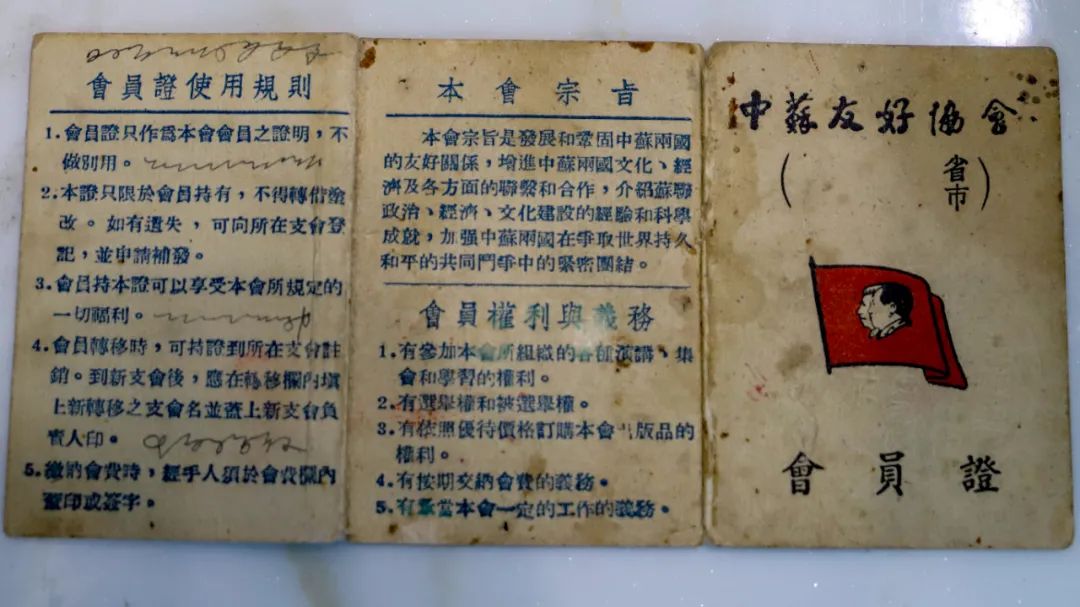 會員證使用規則
1.會員證只作爲本會會員之證明，不
做別用。
2.本證只限於會員持有，不得轉借塗
改。如有遺失，可向所在支會登
記，並申請補發。
3.會員持本證可以享受本會所規定的
一切福利。
4.會員轉移時，可持證到所在支會註
銷。到新支會後，應在轉移欄內填
上新轉移之支會名並蓋上新支會負
責人印。
5.繳納會費時，經手人須於會費欄內
蓋印或簽字。
本會宗旨
本會宗旨是發展和鞏固中蘇兩國
的友好關係，增進中蘇兩國文化、經
濟及各方面的聯繫和合作，介紹蘇聯
政治、經濟、文化建設的經驗和科學
成就，加强中蘇兩國在爭取世界持久
和平的共同鬥爭中的緊密團結。
會員權利與義務
1.有參加本會所組織的各種演講、集
會和學習的權利。
2.有選舉權和被選舉權。
3.有依照優待價格訂購本會出版品的
權利。
4.有按期交納會費的義務。
5.有擔當本會一定的工作的義務。
中蘇友好協會
（省市）
會員證